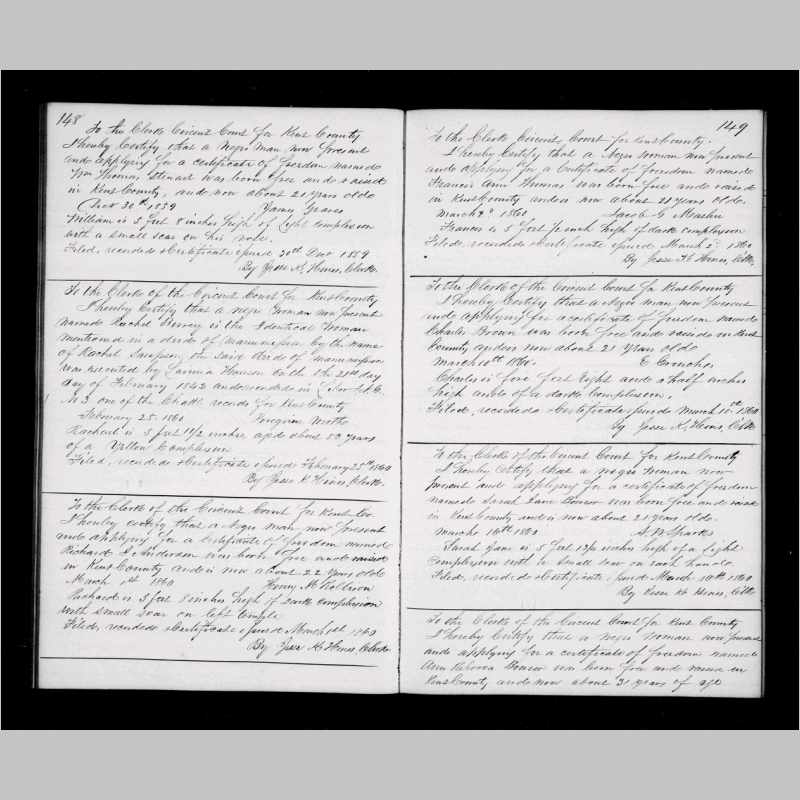 148
To the Clerk Circuit Court for Kent County
I hereby Certify that a Negro Man now present
and applying for a certificate of freedom named
Wm Thomas Stewart was born free and raised
in Kent County, and now about 21 years old
Dec 30th 1859 James Graves
William is 5 feet 8 inches high of light complexion
with a small scar on his nose.
Filed, recorded & Certificate issued 30th Dec 1859
By Jesse K. Hines, Clerk
To the Clerk of the Circuit Court for Kent County
I hereby Certify that a negro Woman now present
named Rachel is the Identical Woman
mentioned in a deed of Manumission by the name
of Rachel Simpson, the said deed of manumission
was executed by Hanson on the 21st day
day of February 1842 and recorded in Liber
No 3 one of the Chattl records for Kent County
February 25 1860 Peregrine
Rachel is 5 feet 1 1/2 inches, aged about 50 years
of a Yellow Complexion
Filed, recorded & Certificate issued February 25th 1860
By Jesse K Hines, Clerk
To the Clerk of the Circuit Court for Kent Co
I hereby certify that a Negro man now present
and applying for a Certificate of freedom named
Richard Anderson was born free and raised
in Kent County and is now about 22 years old
March 1st 1860 Henry M
Richard is 5 feet 8 inches high of dark complexion
with small scar on left temple
Filed, recorded & Certificate issued March 1st 1860
By Jesse K. Hines, Clerk
149
To the Clerk Circuit Court for Kent County.
I hereby Certify that a Negro Woman now present
and applying for a Certificate of freedom named
Francis Ann Thomas was born free and raised
in Kent County and is now about 21 years old.
March 2d 1860 Jacob G
Francis is 5 feet inch high of dark complexion
Filed, recorded & Certificate issued March 2d 1860
By Jesse K Hines, Clk
To the Clerk of the Circuit Court for Kent County
I hereby Certify that a Negro man now present
and applying for a certificate of freedom named
Charles Brown was born free and raised in Kent
County and is now about 21 years old
March 10th 1860. E
Charles is five feet Eight and a half inches
high and is of a dark complexion.
Filed, recorded & Certificate issued March 10th 1860
By Jesse K. Hines, Clk
To the Clerk of the Circuit Court for Kent County
I hereby Certify that a negro Woman now
present and applying for a certificate of freedom
named Sarah Jane was born free and raised
in Kent County and is now about 21 years old.
March 10th 1860 Sparks
Sarah Jane is 5 feet inches high of a light
Complexion with a small scar on each hand.
Filed, recorded & Certificate issued March 10th 1860
By Jesse K Hines, Clk
To the Clerk of the Circuit Court for Kent County
I hereby Certify that a Negro Woman now present
and applying for a certificate of freedom named
Ann Rebecca was born free and raised in
Kent County and now about 31 years of age